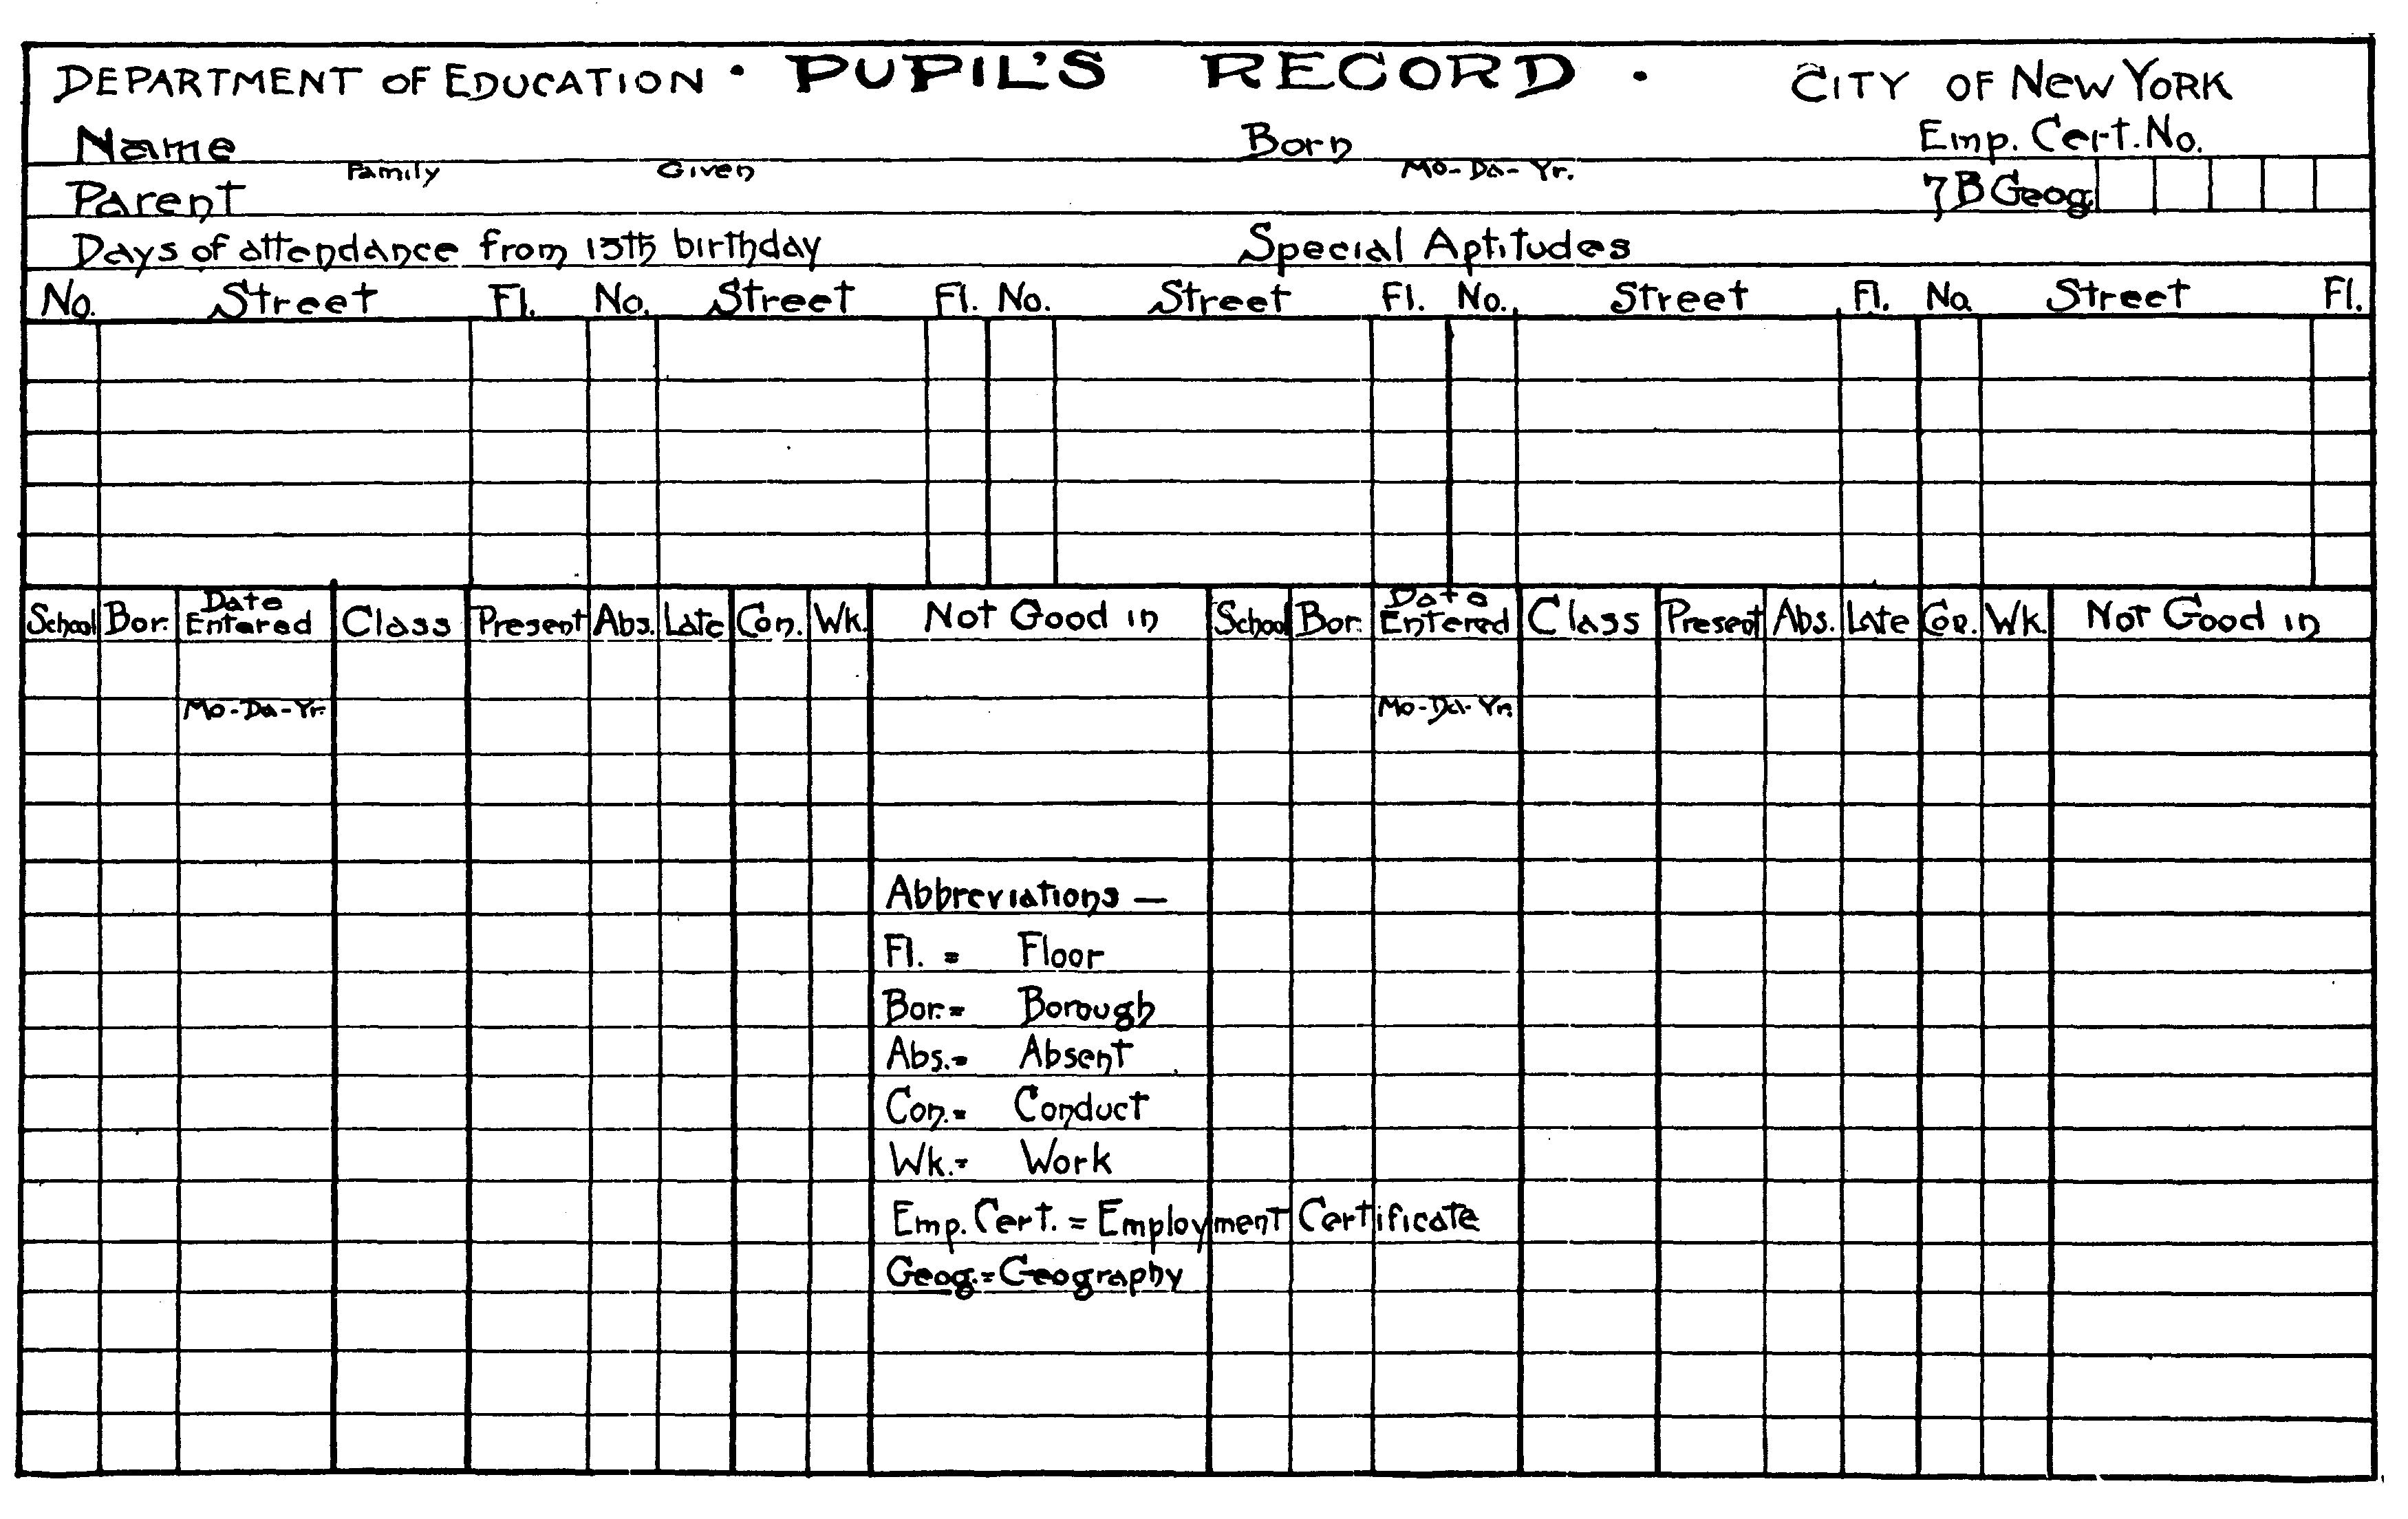 DEPARTMENT OF EDUCATION · PUPIL'S RECORD · CITY OF NEW YORK
Name Born Emp. Cert. No.
Family Given Mo-Da-Yr.
Parent 7B Geog
Days of attendance from 13th birthday Special Aptitudes
No. Street Fl. No. Street Fl. No. Street Fl. No. Street Fl. No. Street Fl.
School Bor. Date Entered Class Present Abs. Late Con. Wk. Not Good in School Bor. Date Entered Class Present Abs. Late Con. Wk. Not Good in
Mo-Da-Yr. Mo-Da-Yr.
Abbreviations —
Fl. = Floor
Bor. = Borough
Abs. = Absent
Con. = Conduct
Wk. = Work
Emp. Cert. = Employment Certificate
Geog. = Geography